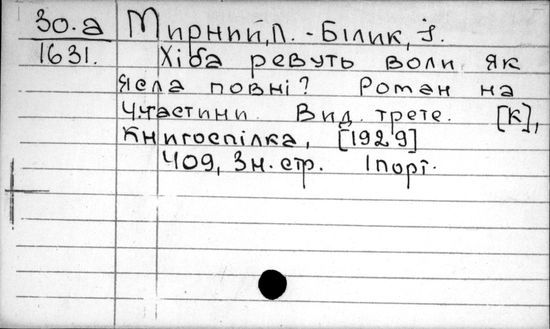 30.а Мирний, П. - Білик, І.
1631. Хіба ревуть воли як
ясла повні? Роман на
4 частини. Вид. трете. [К],
Книгоспілка, [1929]
409, 3 н. стр. 1 порт.